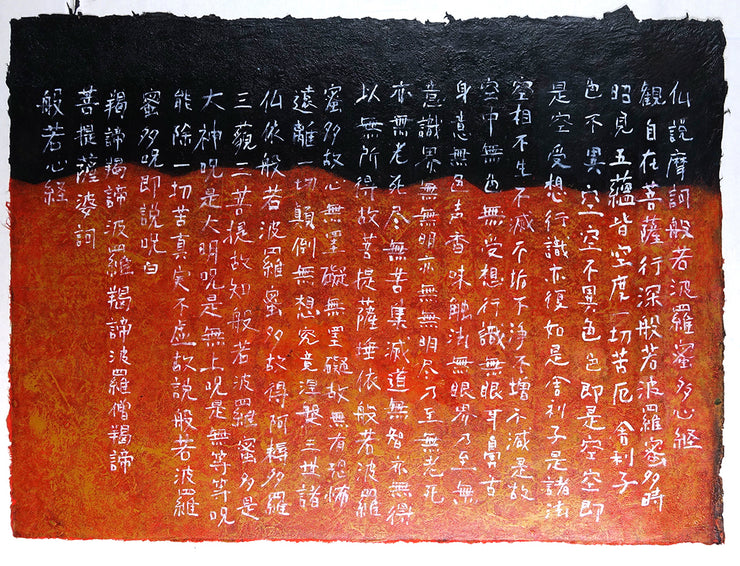 仏説摩訶般若波羅蜜多心経
観自在菩薩行深般若波羅蜜多時
照見五蘊皆空度一切苦厄舎利子
色不異空空不異色色即是空空即
是空受想行識亦復如是舎利子是諸法
空相不生不滅不垢不浄不増不減是故
空中無色無受想行識無眼耳鼻舌
身意無色声香味触法無眼界乃至無
意識界無無明亦無無明尽乃至無老死
亦無老死尽無苦集滅道無智亦無得
以無所得故菩提薩埵依般若波羅
蜜多故心無罣礙無罣礙故無有恐怖
遠離一切顛倒無想究竟涅槃三世諸
仏依般若波羅蜜多故得阿耨多羅
三藐三菩提故知般若波羅蜜多是
大神呪是大明呪是無上呪是無等等呪
能除一切苦真実不虚故説般若波羅
蜜多呪即説呪曰
羯諦羯諦波羅羯諦波羅僧羯諦
菩提薩婆訶
般若心経